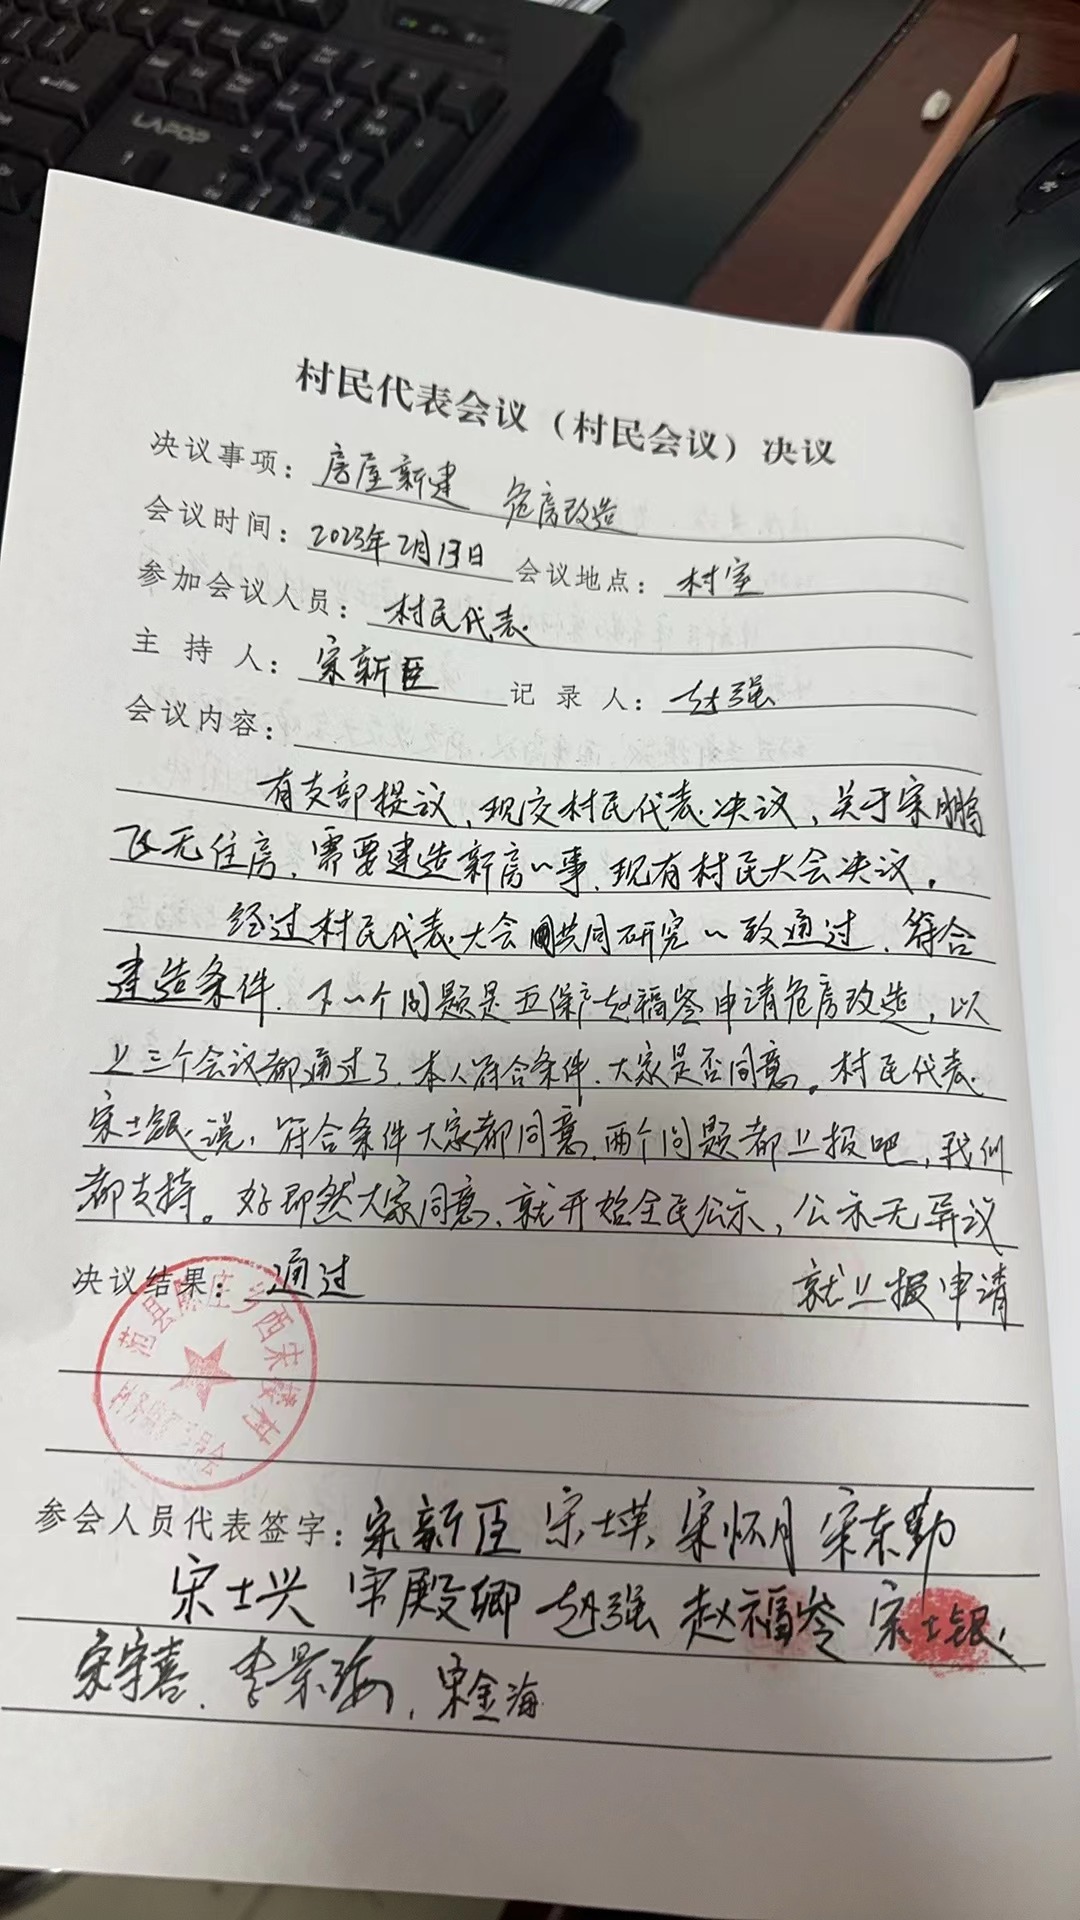 LAPOP
村民代表会议（村民会议）决议
决议事项：房屋新建 危房改造
会议时间：2023年2月13日 会议地点：村室
参加会议人员：村民代表
主持人：宋新臣 记录人：赵强
会议内容：
有支部提议，现交村民代表决议，关于宋鹏
飞无住房，需要建造新房一事，现有村民大会决议。
经过村民代表大会共同研究一致通过，符合
建造条件．下一个问题是五保户赵福岺申请危房改造，以
上三个会议都通过了．本人符合条件．大家是否同意。村民代表
宋士银说，符合条件大家都同意，两个问题都上报吧，我们
都支持。好即然大家同意，就开始全民公示，公示无异议
决议结果：通过 就上报申请
范县 庄乡西宋楼村
参会人员代表签字：宋新臣 宋士英 宋怀月 宋东勤
宋士兴 宋殿卿 赵强 赵福岺 宋士银
宋守喜．李景海，宋金海